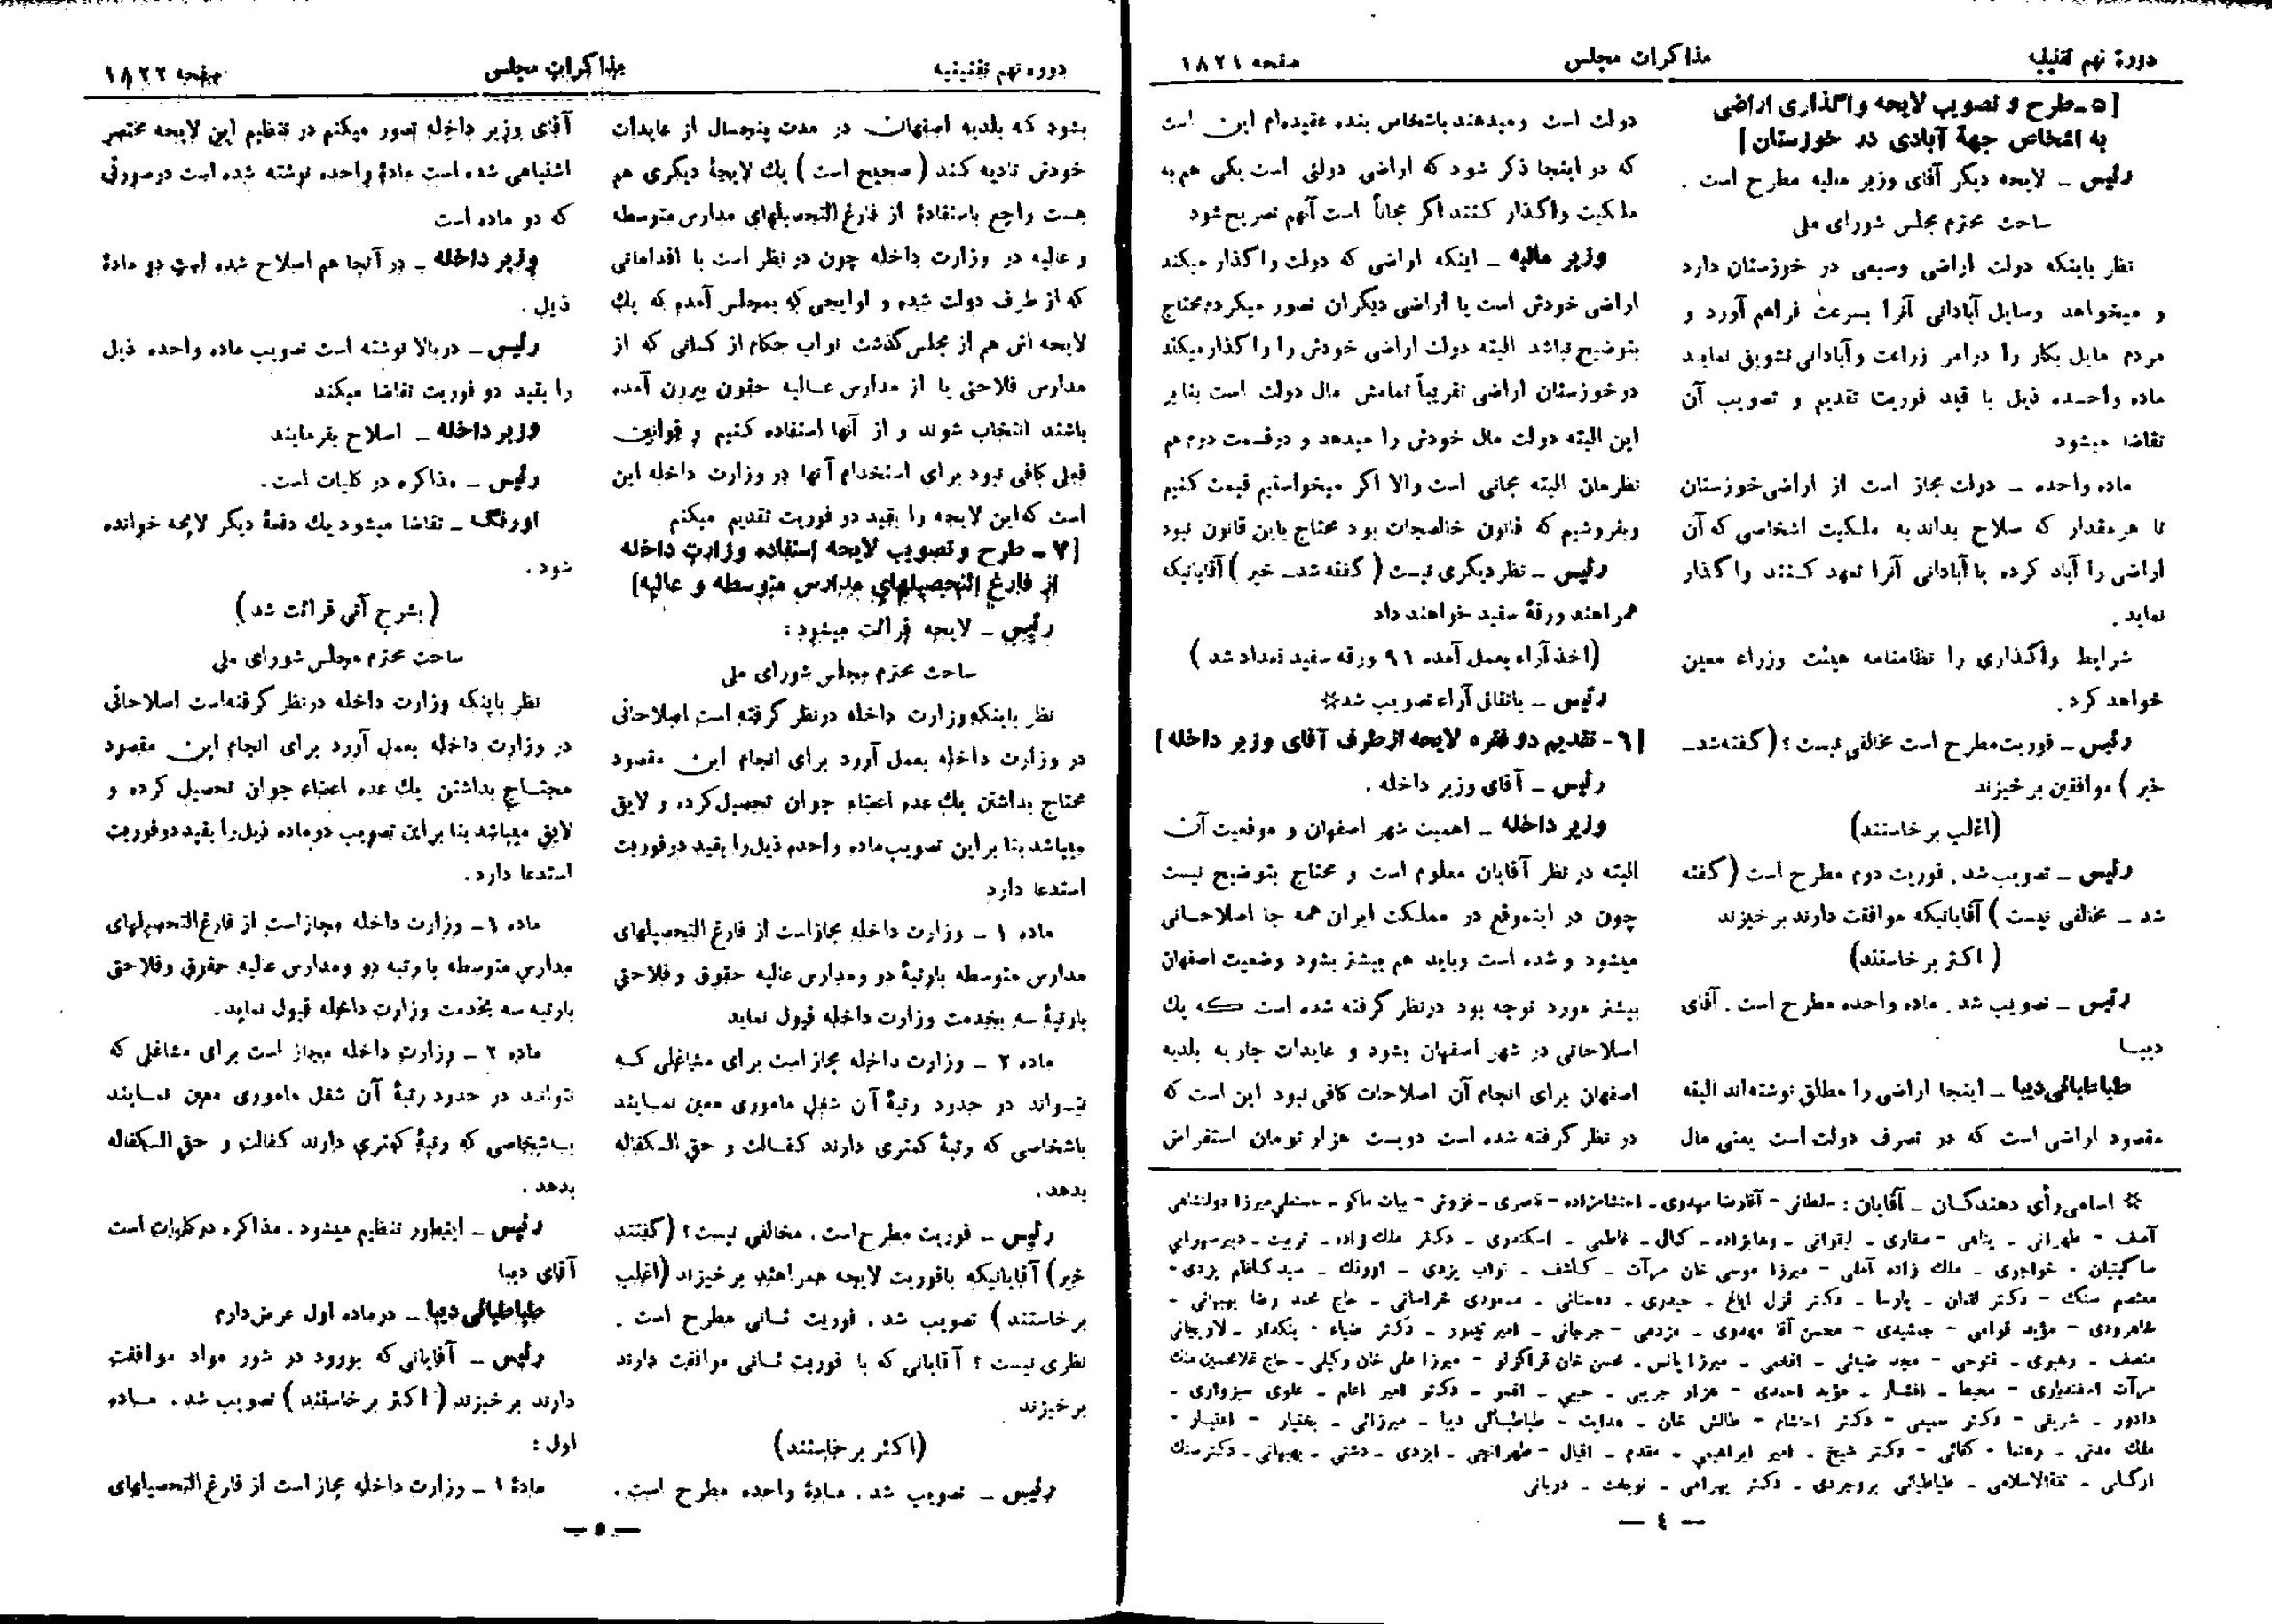 دورهٔ نهم تقنینیه
مذاکرات مجلس
صفحه ۱۸۲۱
[۵ـ طرح و تصویب لایحه واگذاری اراضی
به اشخاص جهة آبادی در خوزستان]
رئیس ـ لایحه دیگر آقای وزیر مالیه مطرح است .
ساحت محترم مجلس شورای ملی
نظر باینکه دولت اراضی وسیعی در خوزستان دارد
و میخواهد وسایل آبادانی آنرا بسرعت فراهم آورد و
مردم مایل بکار را در امر زراعت و آبادانی تشویق نماید
ماده واحـده ذیل با قید فوریت تقدیم و تصویب آن
تقاضا میشود
ماده واحده ـ دولت مجاز است از اراضی خوزستان
تا هر مقدار که صلاح بداند به ملکیت اشخاصی که آن
اراضی را آباد کرده یا آبادانی آنرا تعهد کنند واگذار
نماید .
شرایط واگذاری را نظامنامه هیئت وزراء معین
خواهد کرد .
رئیس ـ فوریت مطرح است مخالفی نیست ؟ ( گفته شد ـ
خیر ) موافقین برخیزند
(اغلب برخاستند)
رئیس ـ تصویب شد . فوریت دوم مطرح است ( گفته
شد ـ مخالفی نیست ) آقایانیکه موافقت دارند برخیزند
( اکثر برخاستند)
رئیس ـ تصویب شد . ماده واحده مطرح است . آقای
دیبـا
طباطبائی دیبا ـ اینجا اراضی را مطلق نوشته‌اند البته
مقصود اراضی است که در تصرف دولت است یعنی مال
دولت است و میدهند باشخاص بنده عقیده‌ام این است
که در اینجا ذکر شود که اراضی دولتی است یکی هم به
ملکیت واگذار کنند اگر مجاناً است آنهم تصریح شود
وزیر مالیه ـ اینکه اراضی که دولت واگذار میکند
اراضی خودش است یا اراضی دیگران تصور میکردم محتاج
بتوضیح نباشد البته دولت اراضی خودش را واگذار میکند
در خوزستان اراضی تقریباً تمامش مال دولت است بنابر
این البته دولت مال خودش را میدهد و در قسمت دوم هم
نظرمان البته مجانی است والا اگر میخواستیم قیمت کنیم
و بفروشیم که قانون خالصجات بود محتاج باین قانون نبود
رئیس ـ نظر دیگری نیست ( گفته شد ـ خیر ) آقایانیکه
همراهند ورقهٔ سفید خواهند داد
(اخذ آراء بعمل آمده ۹۱ ورقه سفید تعداد شد )
رئیس ـ باتفاق آراء تصویب شد*
[۶ ـ تقدیم دو فقره لایحه از طرف آقای وزیر داخله]
رئیس ـ آقای وزیر داخله .
وزیر داخله ـ اهمیت شهر اصفهان و موقعیت آن
البته در نظر آقایان معلوم است و محتاج بتوضیح نیست
چون در اینموقع در مملکت ایران همه جا اصلاحـاتی
میشود و شده است و باید هم بیشتر بشود وضعیت اصفهان
بیشتر مورد توجه بود در نظر گرفته شده است که یك
اصلاحاتی در شهر اصفهان بشود و عایدات جاریه بلدیه
اصفهان برای انجام آن اصلاحات کافی نبود این است که
در نظر گرفته شده است دویست هزار تومان استقراض
* اسامی رأی دهندگـان ـ آقایان : سلطانی - آقارضا مهدوی ـ احتشامزاده - ناصری ـ قزوینی - بیات ماکو ـ حسنعلی میرزا دولتشاهی
آصف - طهرانی - پناهی - صفاری ـ لیقوانی ـ وهابزاده ـ کمال ـ فاطمی ـ اسکندری ـ دکتر ملك زاده ـ تربیت ـ دبیر سهرابی
ساگینیان - خواجوی ـ ملك زاده آملی - میرزا موسی خان مرآت ـ کـاشف ـ نواب یزدی ـ اورنك ـ سیدکاظم یزدی -
معتصم سنگ - دکتر لقمان ـ پارسا ـ دکتر قزل ایاغ ـ حیدری ـ دهستانی ـ مسعودی خراسانی ـ حاج محمد رضا بهبهانی -
شاهرودی - مؤید قوامی - جمشیدی - محسن آقا مهدوی ـ مژدهی - جرجانی ـ امیر تیمور ـ دکتر ضیاء - بنکدار ـ لاریجانی
منصف ـ رهبری ـ فتوحی - سید ضیائی ـ افخمی ـ میرزا یانس ـ محسن خان قراگزلو - میرزا علی خان وکیلی ـ حاج غلامحسین ملك
مرآت اسفندیاری - محیط ـ افشار ـ مؤید احمدی - هزار جریبی ـ حبیبی ـ افسر ـ دکتر امیر اعلم ـ علوی سبزواری ـ
دادور ـ شریفی - دکتر سمیعی - دکتر احتشام - طالش خان ـ هدایت - طباطبـائی دیبا ـ میرزائی ـ بختیار - اعتبار -
ملك مدنی ـ رهنما - کفائی - دکتر شیخ ـ امیر ابراهیمی ـ مقدم ـ اقبال - طهرانچی ـ ایزدی ـ دشتی ـ بهبهانی ـ دکتر سنگ
ارگـانی ـ ثقةالاسلامی ـ طباطبائی بروجردی ـ دکتر بهرامی ـ نوبخت ـ دربانی
— ٤ —
دوره نهم تقنینیه
مذاکرات مجلس
صفحه ۱۸۲۲
بشود که بلدیه اصفهان در مدت پنجسال از عایدات
خودش تادیه کند ( صحیح است ) یك لایحهٔ دیگری هم
هست راجع باستفادهٔ از فارغ التحصیلهای مدارس متوسطه
و عالیه در وزارت داخله چون در نظر است با اقداماتی
که از طرف دولت شده و لوایحی که بمجلس آمده که یك
لایحه اش هم از مجلس گذشت نواب حکام از کسانی که از
مدارس فلاحتی یا از مدارس عـالیه حقوق بیرون آمده
باشند انتخاب شوند و از آنها استفاده کنیم و قوانین
فعلی کافی نبود برای استخدام آنها در وزارت داخله این
است که این لایحه را بقید دو فوریت تقدیم میکنم
[۷ ـ طرح و تصویب لایحه استفاده وزارت داخله
از فارغ التحصیلهای مدارس متوسطه و عالیه]
رئیس ـ لایحه قرائت میشود :
ساحت محترم مجلس شورای ملی
نظر باینکه وزارت داخله در نظر گرفته است اصلاحاتی
در وزارت داخله بعمل آورد برای انجام این مقصود
محتاج بداشتن یك عده اعضاء جوان تحصیل کرده و لایق
میباشد بنا بر این تصویب ماده واحده ذیل را بقید دو فوریت
استدعا دارد
ماده ۱ ـ وزارت داخله مجاز است از فارغ التحصیلهای
مدارس متوسطه با رتبهٔ دو و مدارس عالیه حقوق و فلاحتی
با رتبهٔ سه بخدمت وزارت داخله قبول نماید
ماده ۲ ـ وزارت داخله مجاز است برای مشاغلی کـه
نتـواند در حدود رتبهٔ آن شغل ماموری معین نمـایند
باشخاصی که رتبهٔ کمتری دارند کفـالت و حق الـکفاله
بدهد .
رئیس ـ فوریت مطرح است . مخالفی نیست ؟ (گفتند
خیر) آقایانیکه با فوریت لایحه همراهند برخیزند (اغلب
برخاستند) تصویب شد . فوریت ثـانی مطرح است .
نظری نیست ؟ آقایانی که با فوریت ثـانی موافقت دارند
برخیزند
(اکثر برخاستند)
رئیس ـ تصویب شد . مـادهٔ واحده مطرح است .
آقای وزیر داخله تصور میکنم در تنظیم این لایحه مختصر
اشتباهی شده است مادهٔ واحده نوشته شده است در صورتی
که دو ماده است
وزیر داخله ـ در آنجا هم اصلاح شده است دو مادهٔ
ذیل .
رئیس ـ در بالا نوشته است تصویب ماده واحده ذیل
را بقید دو فوریت تقاضا میکند
وزیر داخله ـ اصلاح بفرمایند
رئیس ـ مذاکره در کلیات است .
اورنگ ـ تقاضا میشود یك دفعهٔ دیگر لایحه خوانده
شود .
(بشرح آتی قرائت شد)
ساحت محترم مجلس شورای ملی
نظر باینکه وزارت داخله در نظر گرفته است اصلاحاتی
در وزارت داخله بعمل آورد برای انجام این مقصود
محتـاج بداشتن یك عده اعضاء جوان تحصیل کرده و
لایق میباشد بنا بر این تصویب دو ماده ذیل را بقید دو فوریت
استدعا دارد .
ماده ۱ ـ وزارت داخله مجاز است از فارغ التحصیلهای
مدارس متوسطه با رتبه دو و مدارس عالیه حقوق و فلاحتی
با رتبه سه بخدمت وزارت داخله قبول نماید .
ماده ۲ ـ وزارت داخله مجاز است برای مشاغلی که
نتوانـد در حدود رتبهٔ آن شغل ماموری معین نمـایند
بـاشخاصی که رتبهٔ کمتری دارند کفالت و حق الـکفاله
بدهد .
رئیس ـ اینطور تنظیم میشود . مذاکره در کلیات است
آقای دیبا
طباطبائی دیبا ـ در ماده اول عرض دارم
رئیس ـ آقایانی که بورود در شور مواد موافقت
دارند برخیزند ( اکثر برخاستند ) تصویب شد . مـاده
اول :
مادهٔ ۱ ـ وزارت داخله مجاز است از فارغ التحصیلهای
— ۵ —